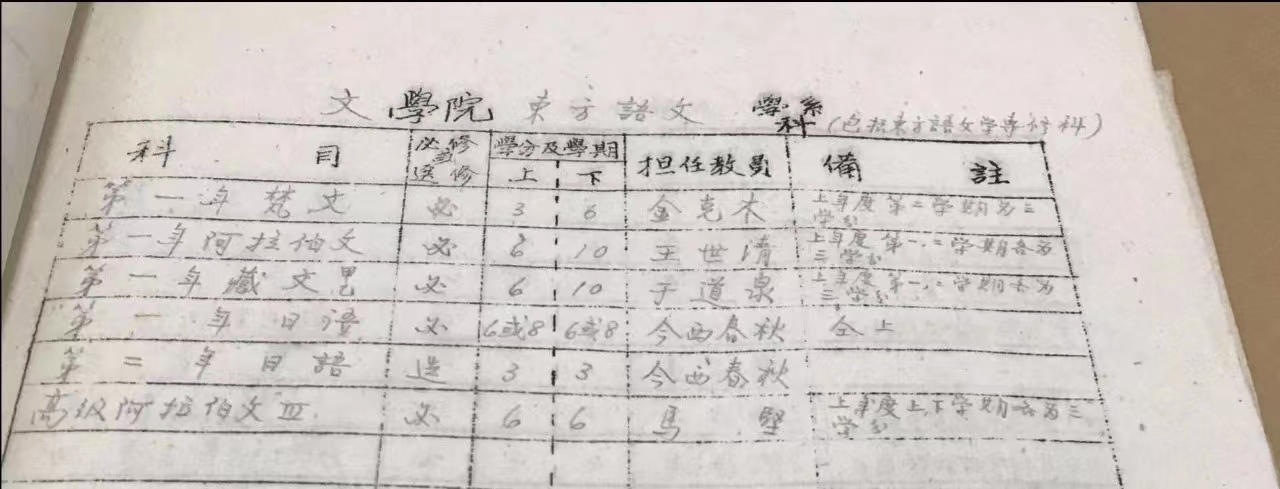 文學院 東方語文 學系科 (包括東方語文学專修科)
科 目 必修或選修 學分及學期 上 下 担任教員 備 註
第一年梵文 必 3 6 金克木 上年度第二学期为三学分
第一年阿拉伯文 必 6 10 王世清 上年度第一,二学期各为三学分
第一年藏文 必 6 10 于道泉 上年度第一,二学期各为三学分
第一年日語 必 6或8 6或8 今西春秋 仝上
第二年日語 選 3 3 今西春秋
高级阿拉伯文Ⅲ 必 6 6 馬堅 上年度上下学期各为三学分